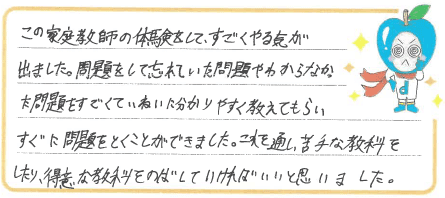 この家庭教師の体験をして、すごくやる気が
出ました。問題をして忘れていた問題やわからなか
た問題をすごくていねいに分かりやすく教えてもらい
すぐに問題をとくことができました。これを通し、苦手な教科を
したり、得意な教科をのばしていければいいと思いました。
d